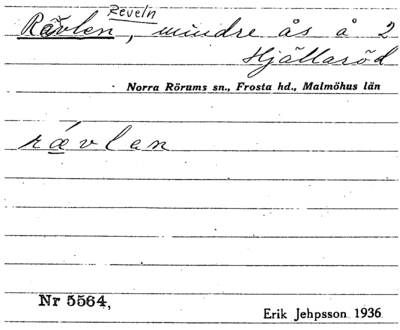 Reveln
Rävlen, mindre ås å 2
Hjällaröd
Norra Rörums sn., Frosta hd., Malmöhus län
rǽvlen
Nr 5564,
Erik Jehpsson 1936